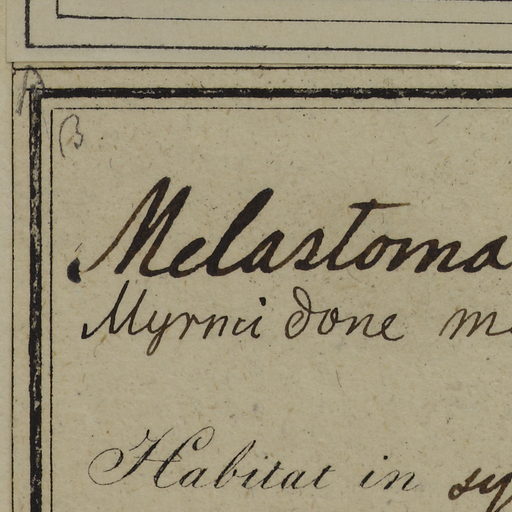 A
B
Melastoma
Myrmidone ma
Habitat in sy